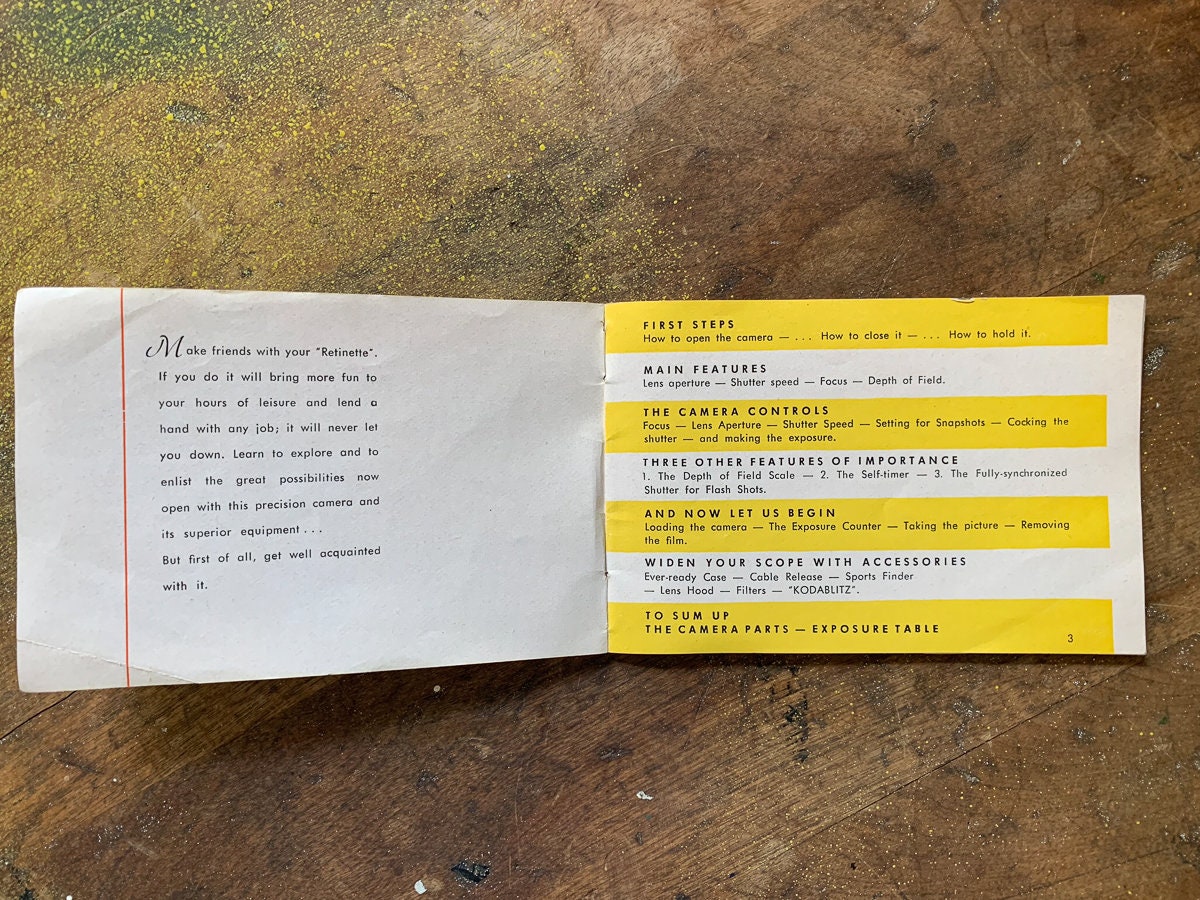 Make friends with your "Retinette".
If you do it will bring more fun to
your hours of leisure and lend a
hand with any job; it will never let
you down. Learn to explore and to
enlist the great possibilities now
open with this precision camera and
its superior equipment . . .
But first of all, get well acquainted
with it.
FIRST STEPS
How to open the camera — . . . How to close it — . . . How to hold it.
MAIN FEATURES
Lens aperture — Shutter speed — Focus — Depth of Field.
THE CAMERA CONTROLS
Focus — Lens Aperture — Shutter Speed — Setting for Snapshots — Cocking the
shutter — and making the exposure.
THREE OTHER FEATURES OF IMPORTANCE
1. The Depth of Field Scale — 2. The Self-timer — 3. The Fully-synchronized
Shutter for Flash Shots.
AND NOW LET US BEGIN
Loading the camera — The Exposure Counter — Taking the picture — Removing
the film.
WIDEN YOUR SCOPE WITH ACCESSORIES
Ever-ready Case — Cable Release — Sports Finder
— Lens Hood — Filters — "KODABLITZ".
TO SUM UP
THE CAMERA PARTS — EXPOSURE TABLE
3